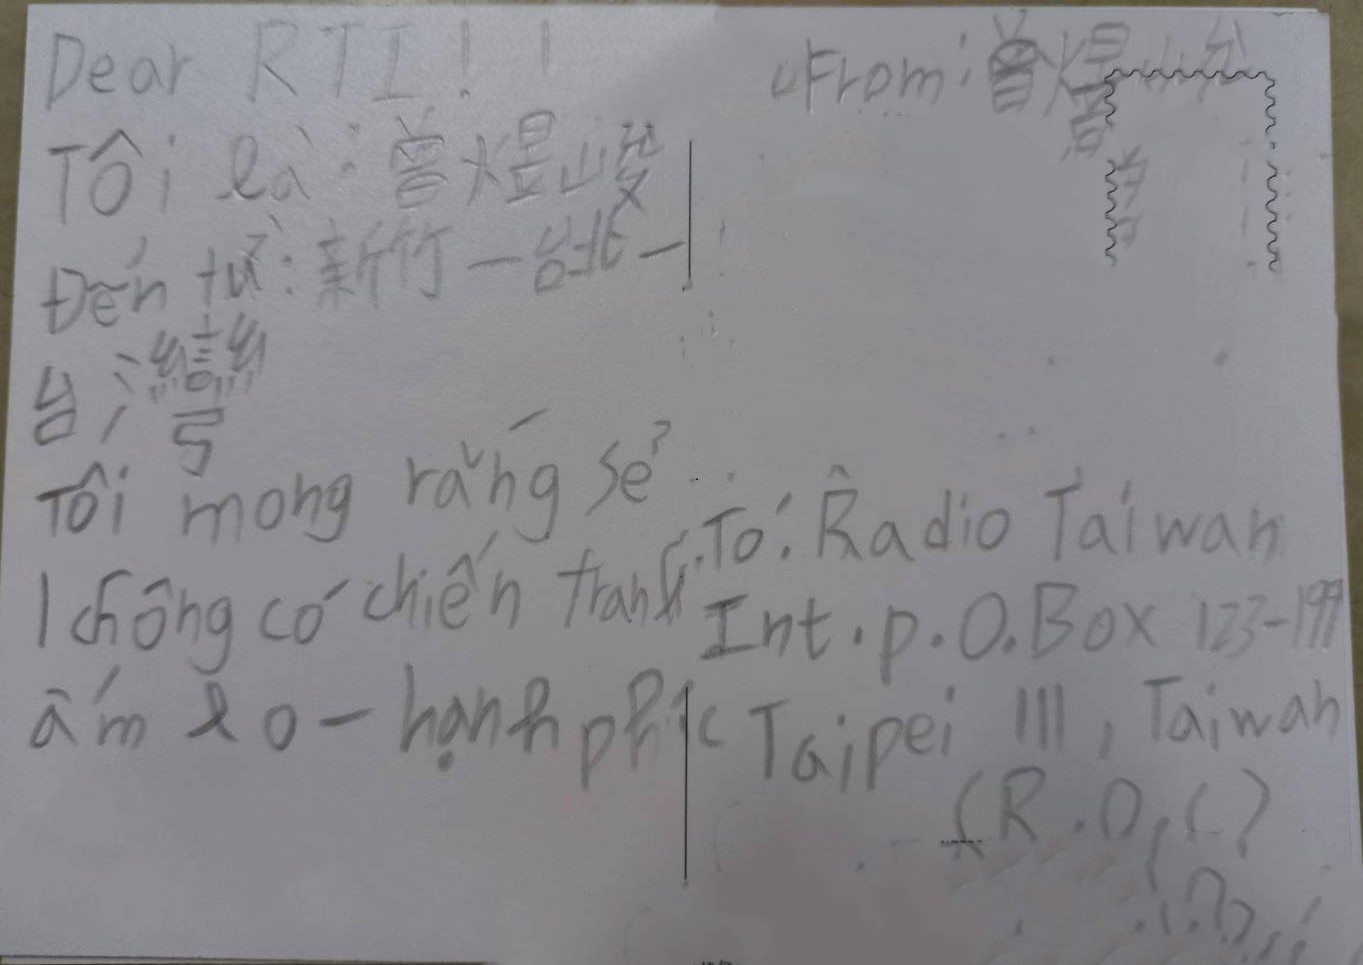 Dear RTI!!
Tôi là: 曾煜峻
Đến từ: 新竹-台北-
台灣
Tôi mong rằng sẽ
không có chiến tranh
ấm lo - hạnh phúc
From: 曾煜
To: Radio Taiwan
Int. p.O.Box 123-199
Taipei 111, Taiwan
(R.O.C)